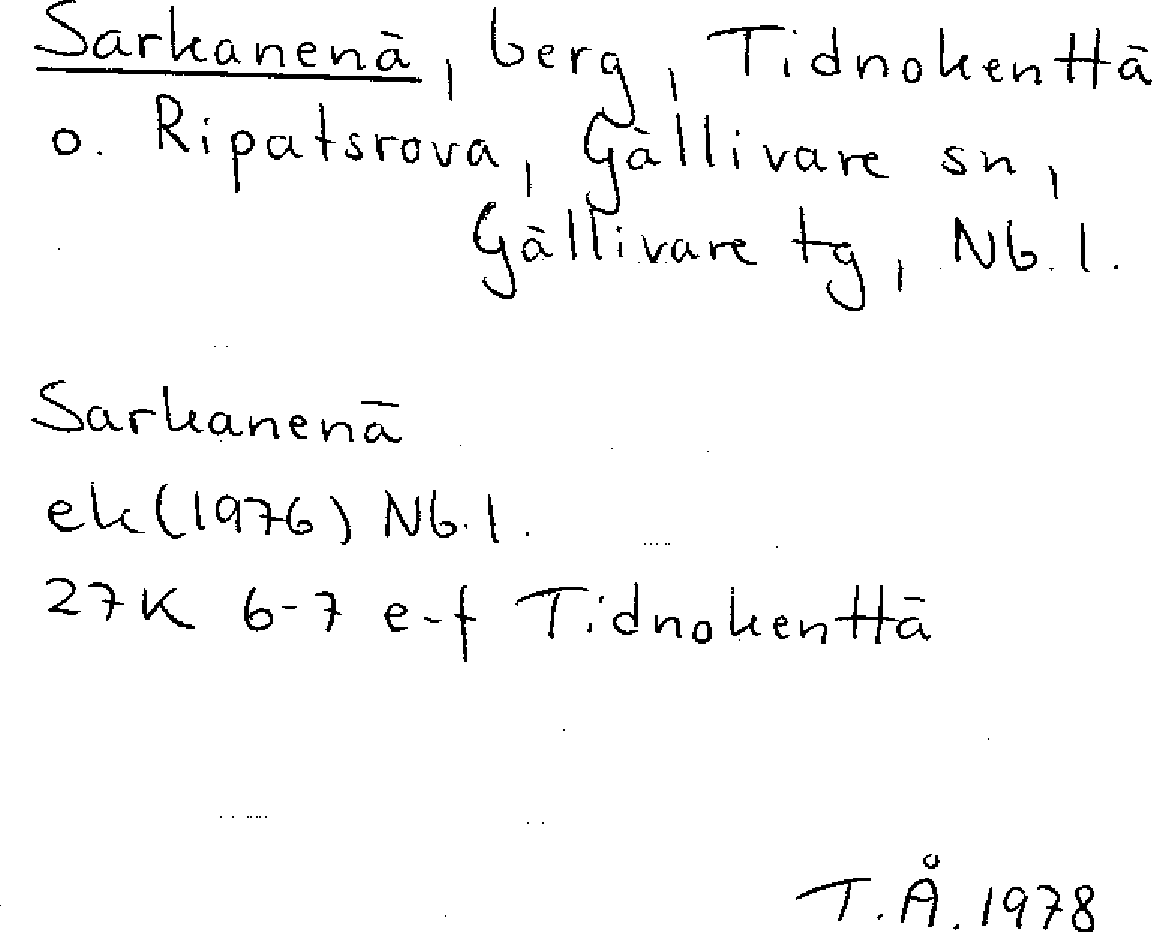 Sarkanenä, berg, Tidnokenttä
o. Ripatsrova, Gällivare sn,
Gällivare tg, Nb. l.
Sarkanenä
ek (1976) Nb. l.
27K 6-7 e-f Tidnokenttä
T.Å. 1978